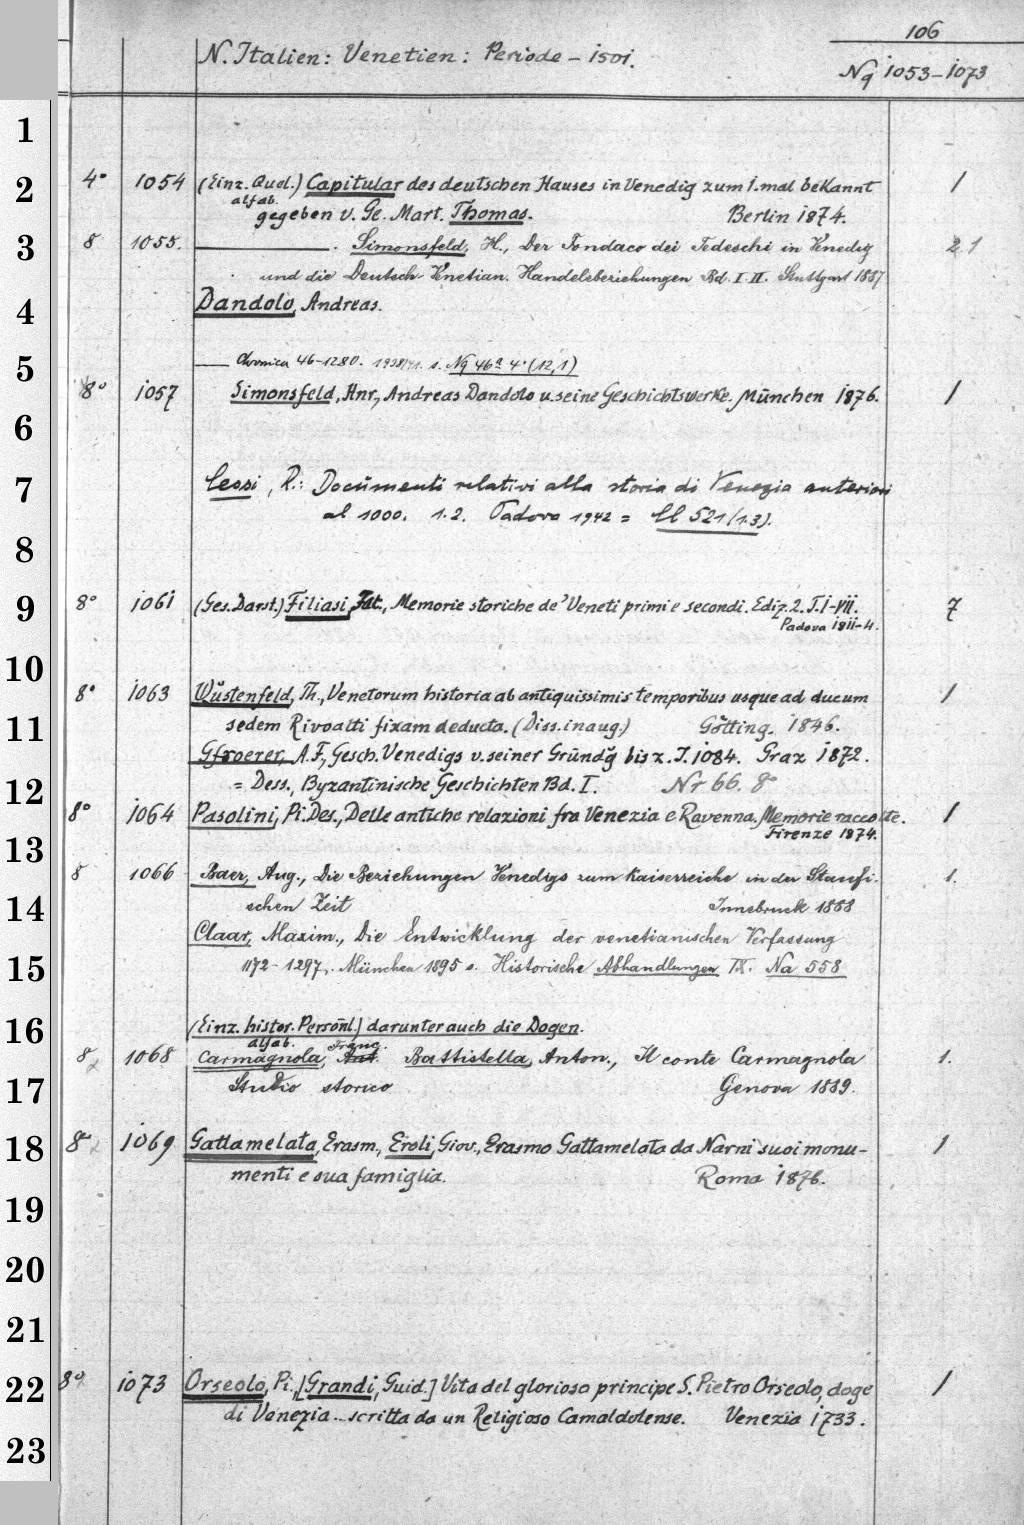 106
N. Italien: Venetien: Periode - 1501.
Nq 1053-1073
1
2
4° 1054 (Einz. Quel.) Capitular des deutschen Hauses in Venedig zum 1. mal bekannt 1
alfab.
gegeben v. Ge. Mart. Thomas. Berlin 1874.
3
8 1055. ———. Simonsfeld, H., Der Fondaco dei Tedeschi in Venedig 2.1
und die Deutsch-Venetian. Handelsbeziehungen Bd. I-II. Stuttgart 1887
4
Dandolo, Andreas.
5
— Chronica 46-1280. 1938/41. s. Nq 46ª 4° (12,1)
8° 1057 Simonsfeld, Hnr., Andreas Dandolo u. seine Geschichtswerke. München 1876. 1
6
7
Cessi, R.: Documenti relativi alla storia di Venezia anteriori
al 1000. 1.2. Padova 1942 = Ll 521 (1.3).
8
9
8° 1061 (Ges. Darst.) Filiasi, Jac., Memorie storiche de' Veneti primi e secondi. Ediz. 2. T. I-VII. 7
Padova 1811-4.
10
8° 1063 Wüstenfeld, Th., Venetorum historia ab antiquissimis temporibus usque ad ducum 1
11
sedem Rivoalti fixam deducta. (Diss. inaug.) Götting. 1846.
Gfroerer, A. F., Gesch. Venedigs v. seiner Gründg bis z. J. 1084. Graz 1872.
12
= Dess., Byzantinische Geschichten Bd. I. Nr 66. 8°
8° 1064 Pasolini, Pi. Des., Delle antiche relazioni fra Venezia e Ravenna. Memorie raccolte. 1
Firenze 1874.
13
8 1066 Baer, Aug., Die Beziehungen Venedigs zum Kaiserreiche in der Staufi- 1.
14
schen Zeit Innsbruck 1888
Claar, Maxim., Die Entwicklung der venetianischen Verfassung
15
1172-1297. München 1895 s. Historische Abhandlungen IX. Na 558
16
(Einz. histor. Persönl.) darunter auch die Dogen.
alfab. Franc.
8 1068 Carmagnola, Ant. Battistella, Anton., Il conte Carmagnola 1.
17
Studio storico Genova 1889.
18
8° 1069 Gattamelata, Erasm., Eroli, Giov., Erasmo Gattamelata da Narni suoi monu- 1
menti e sua famiglia. Roma 1876.
19
20
21
22
8° 1073 Orseolo, Pi., [Grandi, Guid.] Vita del glorioso principe S. Pietro Orseolo, doge 1
di Venezia... scritta da un Religioso Camaldolense. Venezia 1733.
23